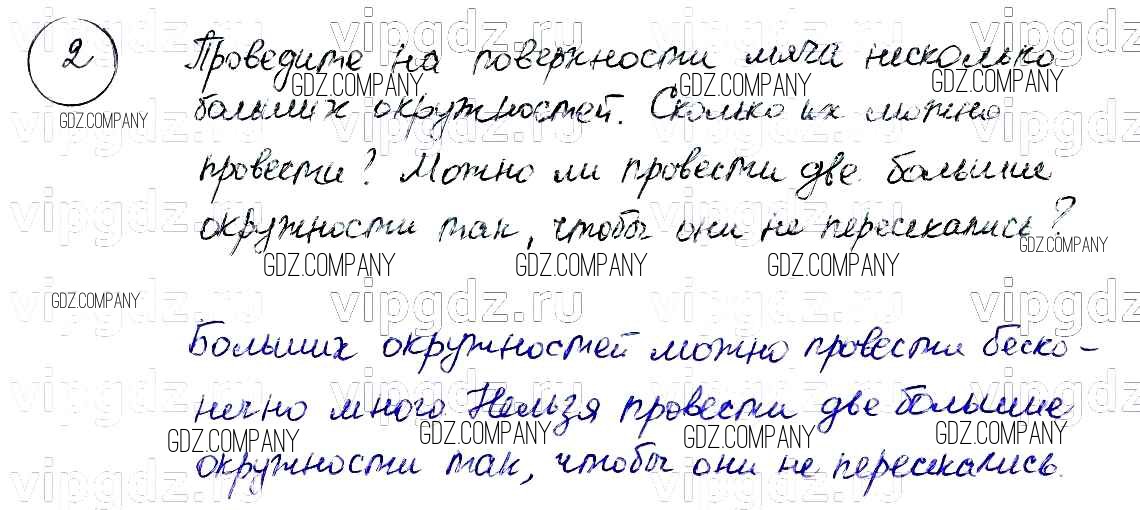 2
Проведите на поверхности мяча несколько
больших окружностей. Сколько их можно
провести? Можно ли провести две большие
окружности так, чтобы они не пересекались?
Больших окружностей можно провести беско-
нечно много. Нельзя провести две большие
окружности так, чтобы они не пересекались.
vipgdz.ru
GDZ.COMPANY